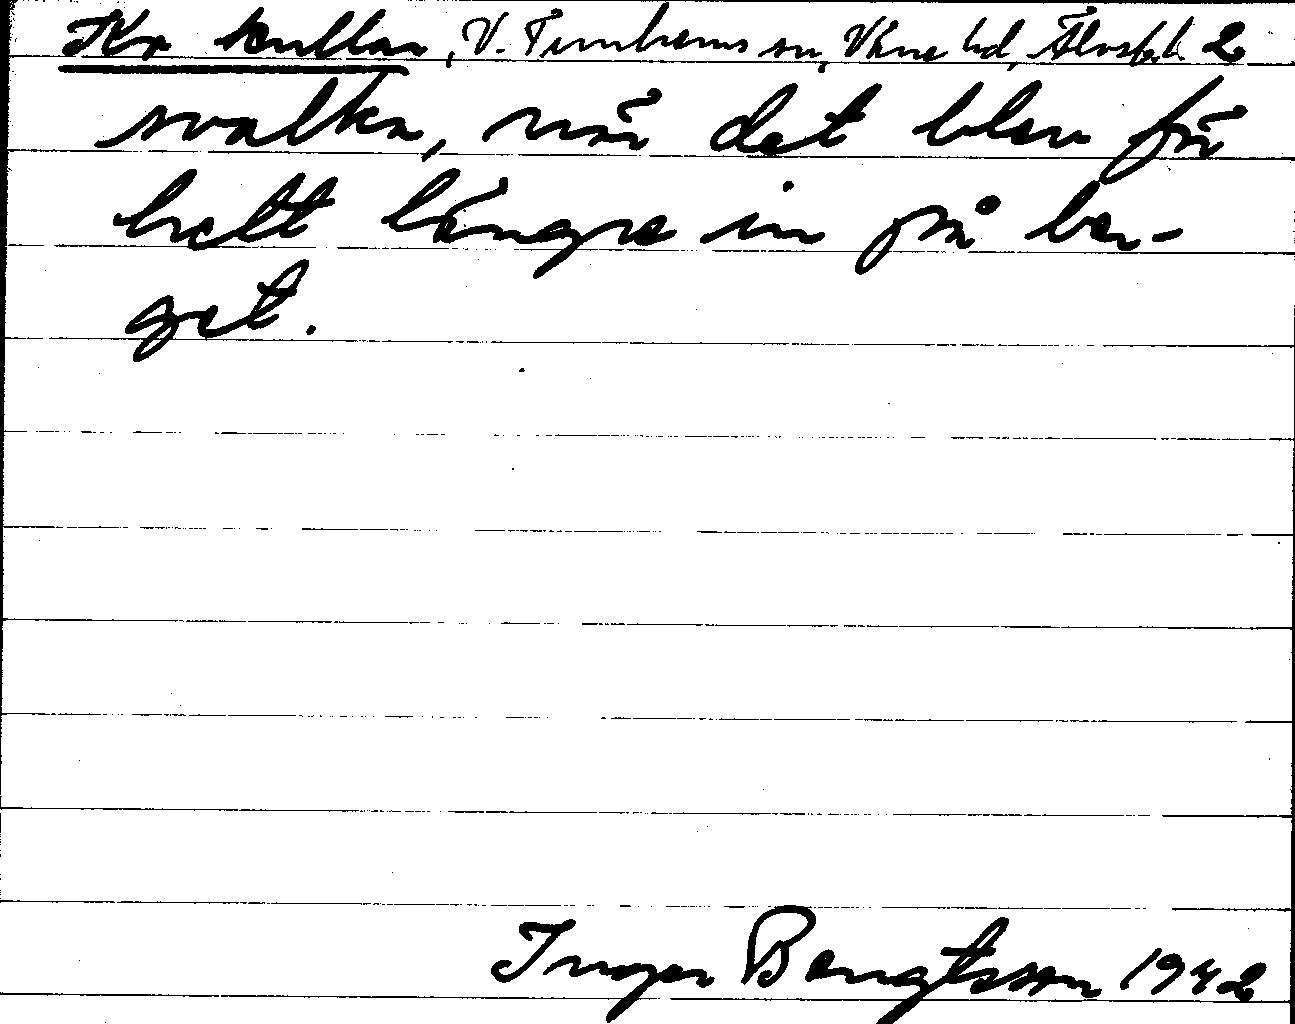 Kr kullar, V. Tunhems sn, Väne hd, Älvsb.l. 2
svalka, när det blev för
hett längre in på ber-
get.
Inger Bengtsson 1942